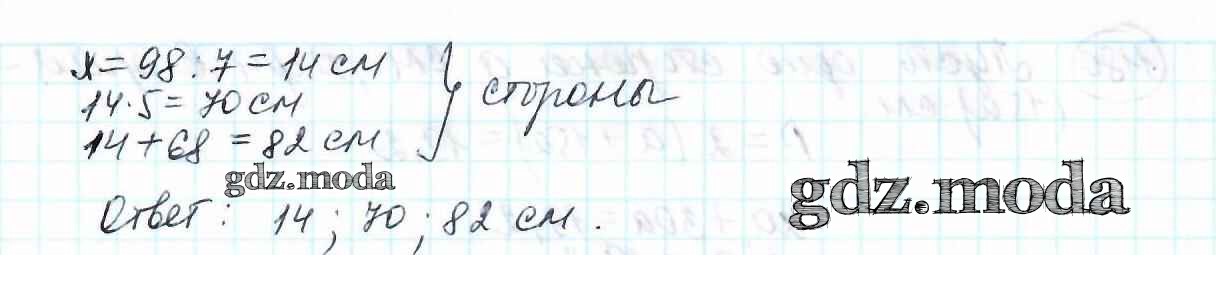 x = 98 : 7 = 14 см
14 · 5 = 70 см
14 + 68 = 82 см
} стороны
gdz.moda
Ответ: 14 ; 70 ; 82 см.
gdz.moda